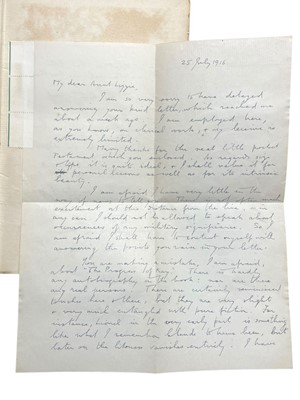 25 July 1916
My dear Aunt
I am so very sorry to have delayed
answering your kind letter, which reached me
about a week ago. I am employed here,
as you know, on clerical work, & my leisure is
extremely limited.
Many thanks for the neat little pocket
Testament which you enclosed.
personal reasons as well as for its intrinsic
beauty.
I am afraid I have very little in the
excitement at this distance from the line, & in
any case I should not be allowed to speak about
occurrences of any military significance. So I
am afraid I shall have to content myself with
answering the points you raise in your letter.
You are making a mistake, I am afraid,
about "The Prisoner of". There is hardly
any autobiography in the book: nor are there
any real persons. There are certainly reminiscent
touches here & there, but they are very slight &
very much entangled with pure fiction. For
instance, Lionel in the very early part is something
like what I remember to have been, but
later on the likeness vanishes entirely. I have